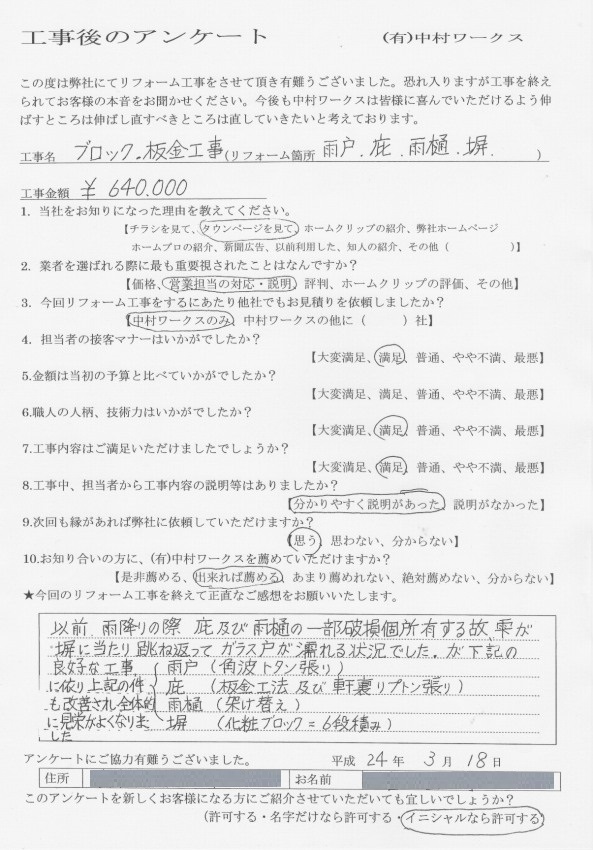 工事後のアンケート (有)中村ワークス
この度は弊社にてリフォーム工事をさせて頂き有難うございました。恐れ入りますが工事を終え
られてお客様の本音をお聞かせください。今後も中村ワークスは皆様に喜んでいただけるよう伸
ばすところは伸ばし直すべきところは直していきたいと考えております。
工事名 ブロック.板金工事(リフォーム箇所 雨戸.庇.雨樋.塀. )
工事金額 ¥640.000
1. 当社をお知りになった理由を教えてください。
【チラシを見て、タウンページを見て、ホームクリップの紹介、弊社ホームページ
ホームプロの紹介、新聞広告、以前利用した、知人の紹介、その他( )】
2. 業者を選ばれる際に最も重要視されたことはなんですか?
【価格、営業担当の対応・説明、評判、ホームクリップの評価、その他】
3. 今回リフォーム工事をするにあたり他社でもお見積りを依頼しましたか?
【中村ワークスのみ、中村ワークスの他に( )社】
4. 担当者の接客マナーはいかがでしたか?
【大変満足、満足、普通、やや不満、最悪】
5.金額は当初の予算と比べていかがでしたか?
【大変満足、満足、普通、やや不満、最悪】
6.職人の人柄、技術力はいかがでしたか?
【大変満足、満足、普通、やや不満、最悪】
7.工事内容はご満足いただけましたでしょうか?
【大変満足、満足、普通、やや不満、最悪】
8.工事中、担当者から工事内容の説明等はありましたか?
【分かりやすく説明があった、説明がなかった】
9.次回も縁があれば弊社に依頼していただけますか?
【思う、思わない、分からない】
10.お知り合いの方に、(有)中村ワークスを薦めていただけますか?
【是非薦める、出来れば薦める、あまり薦めれない、絶対薦めない、分からない】
★今回のリフォーム工事を終えて正直なご感想をお願いいたします。
以前、雨降りの際 庇及び雨樋の一部破損個所有する故、雫が
塀に当たり跳ね返ってガラス戸が濡れる状況でした.が下記の
良好な工事 雨戸(角波トタン張り)
に依り上記の件 庇(板金工法及び軒裏リプトン張り)
も改善され全体的 雨樋(架け替え)
に見栄がよくなりま 塀(化粧ブロック=6段積み)
した
アンケートにご協力有難うございました。 平成 24 年 3 月 18 日
住所 お名前
このアンケートを新しくお客様になる方にご紹介させていただいても宜しいでしょうか?
(許可する・名字だけなら許可する・イニシャルなら許可する)